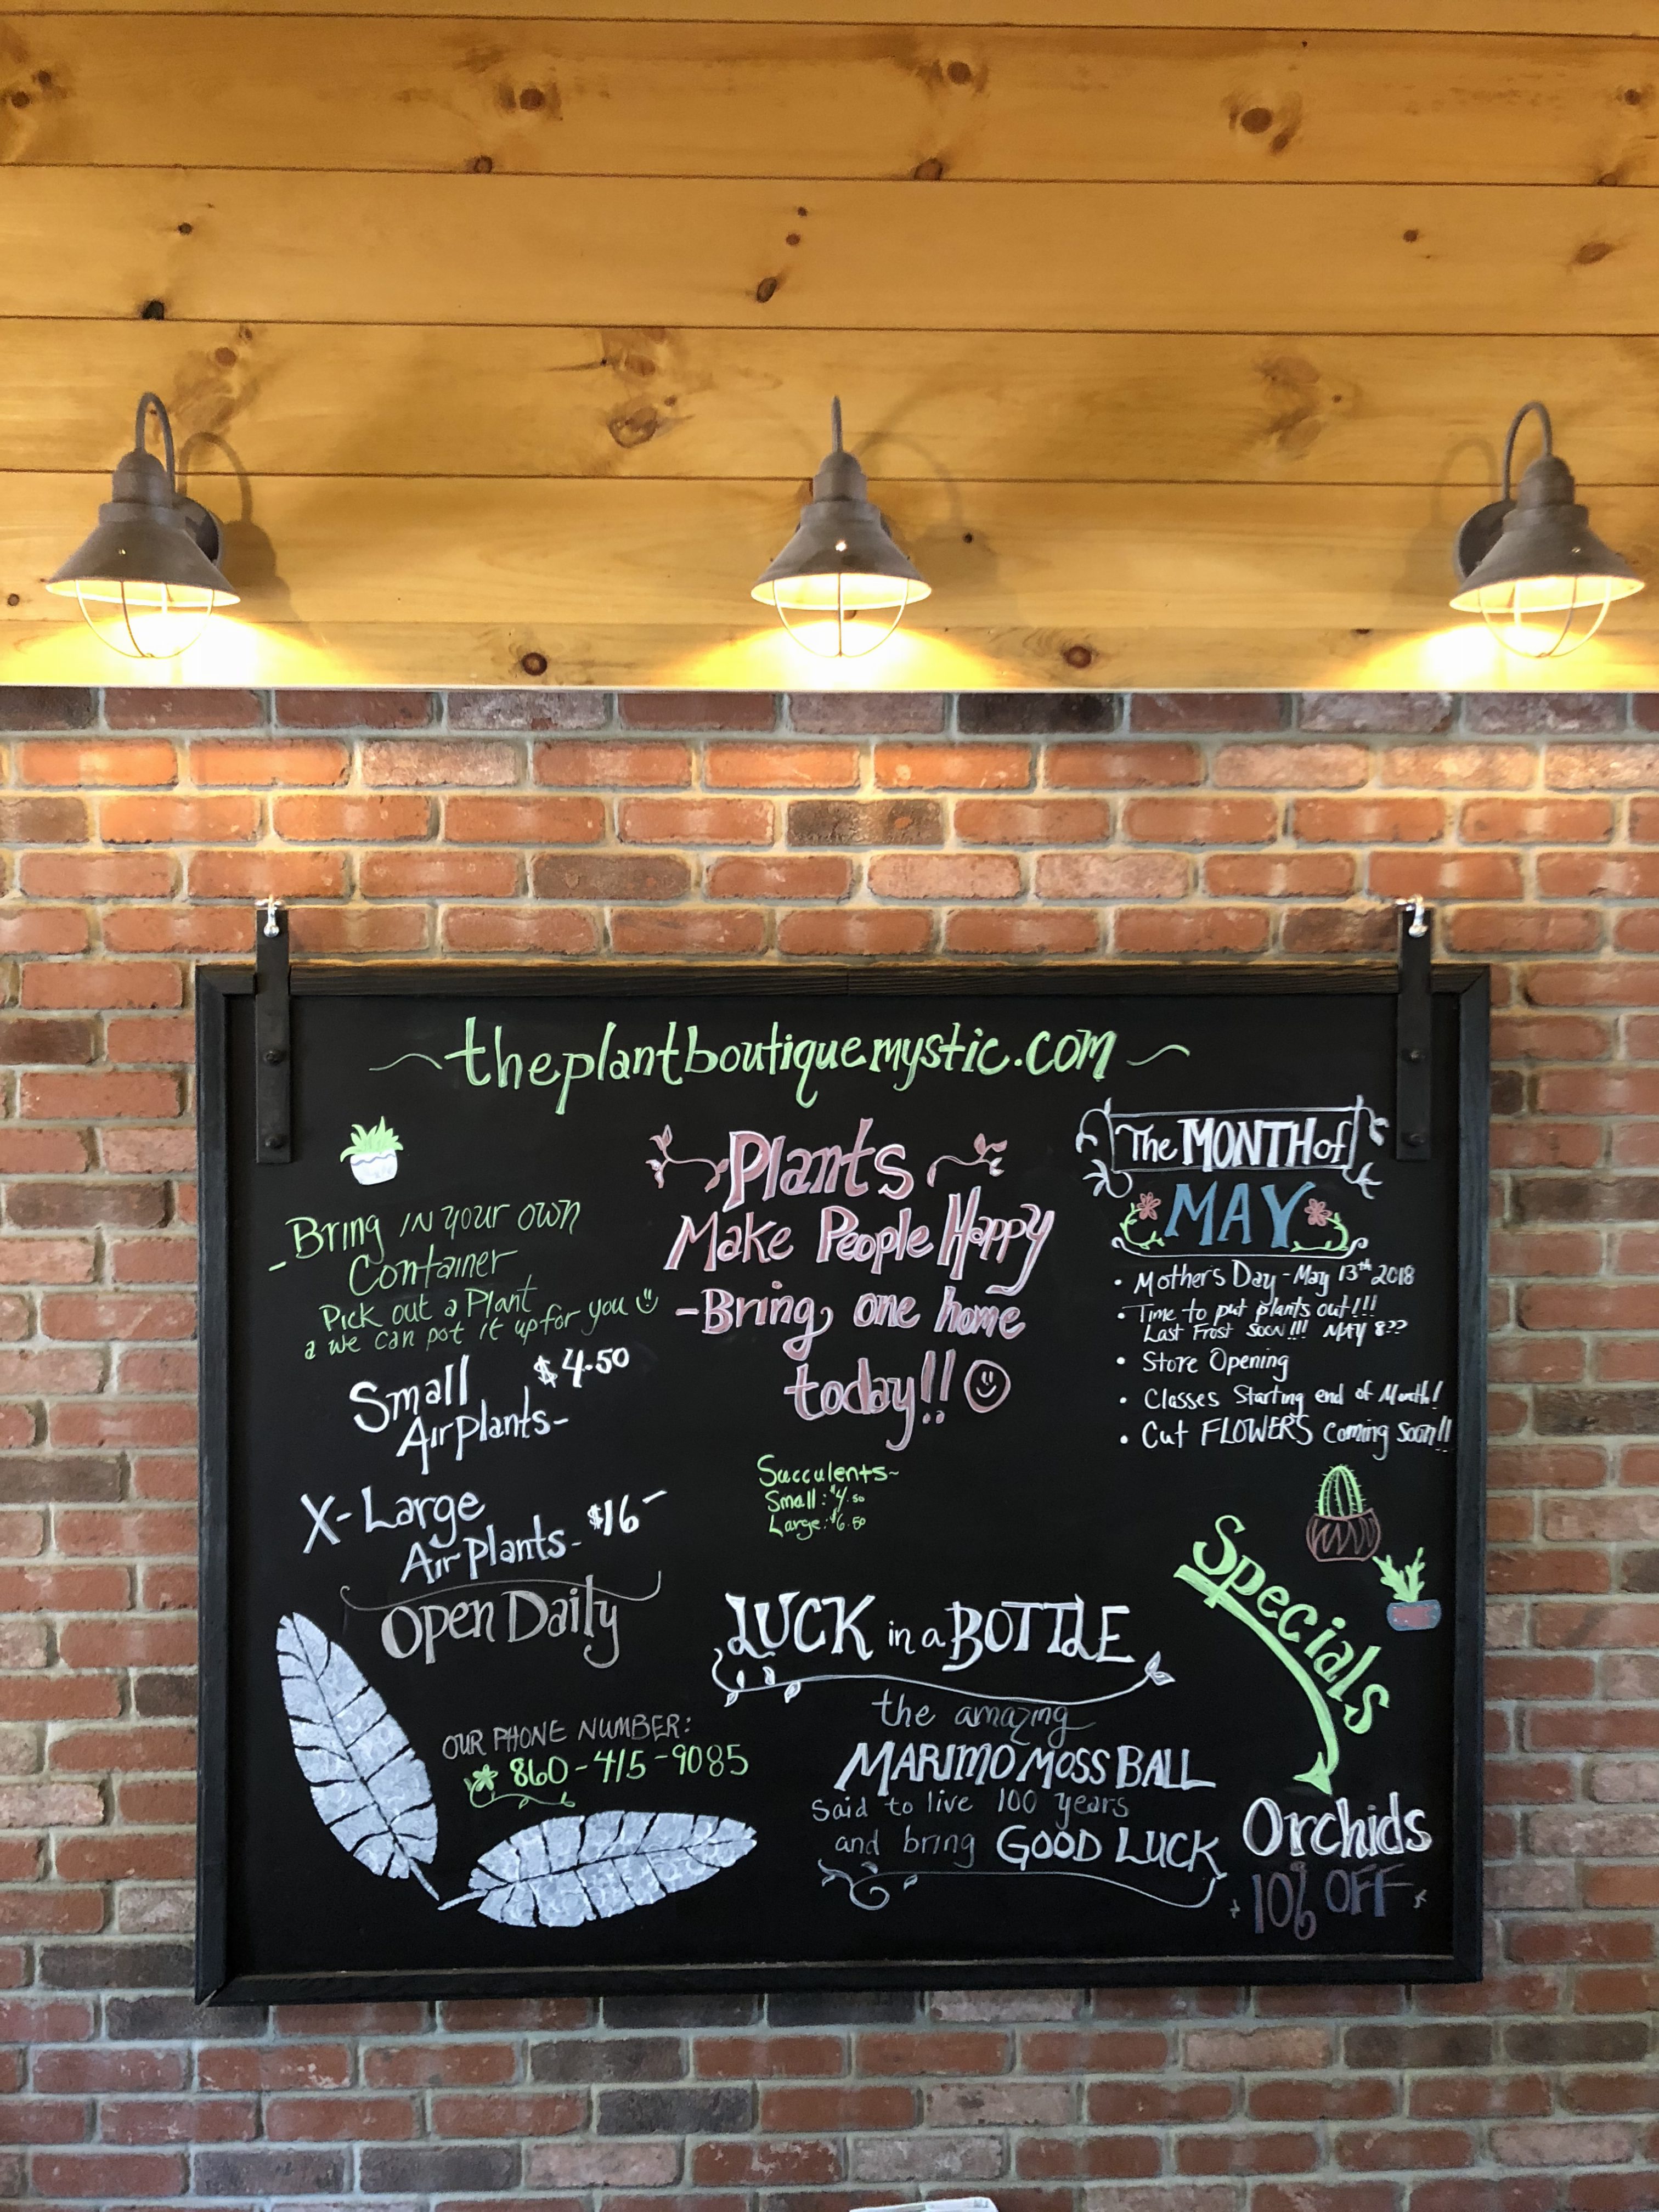 theplantboutiquemystic.com
- Bring in your own
Container
Pick out a Plant
& we can pot it up for you
Small $4.50
Air plants-
X-Large $16-
Air Plants-
Open Daily
OUR PHONE NUMBER:
860-415-9085
Plants
Make People Happy
-Bring one home
today!!
Succulents-
Small: $4.50
Large: $6.50
LUCK in a BOTTLE
the amazing
MARIMO MOSS BALL
Said to live 100 years
and bring GOOD LUCK
The MONTH of
MAY
• Mother's Day - May 13th 2018
• Time to put plants out!!!
Last Frost soon!!! MAY 8??
• Store Opening
• Classes Starting end of Month!
• Cut FLOWERS Coming Soon!!
Specials
Orchids
10% OFF